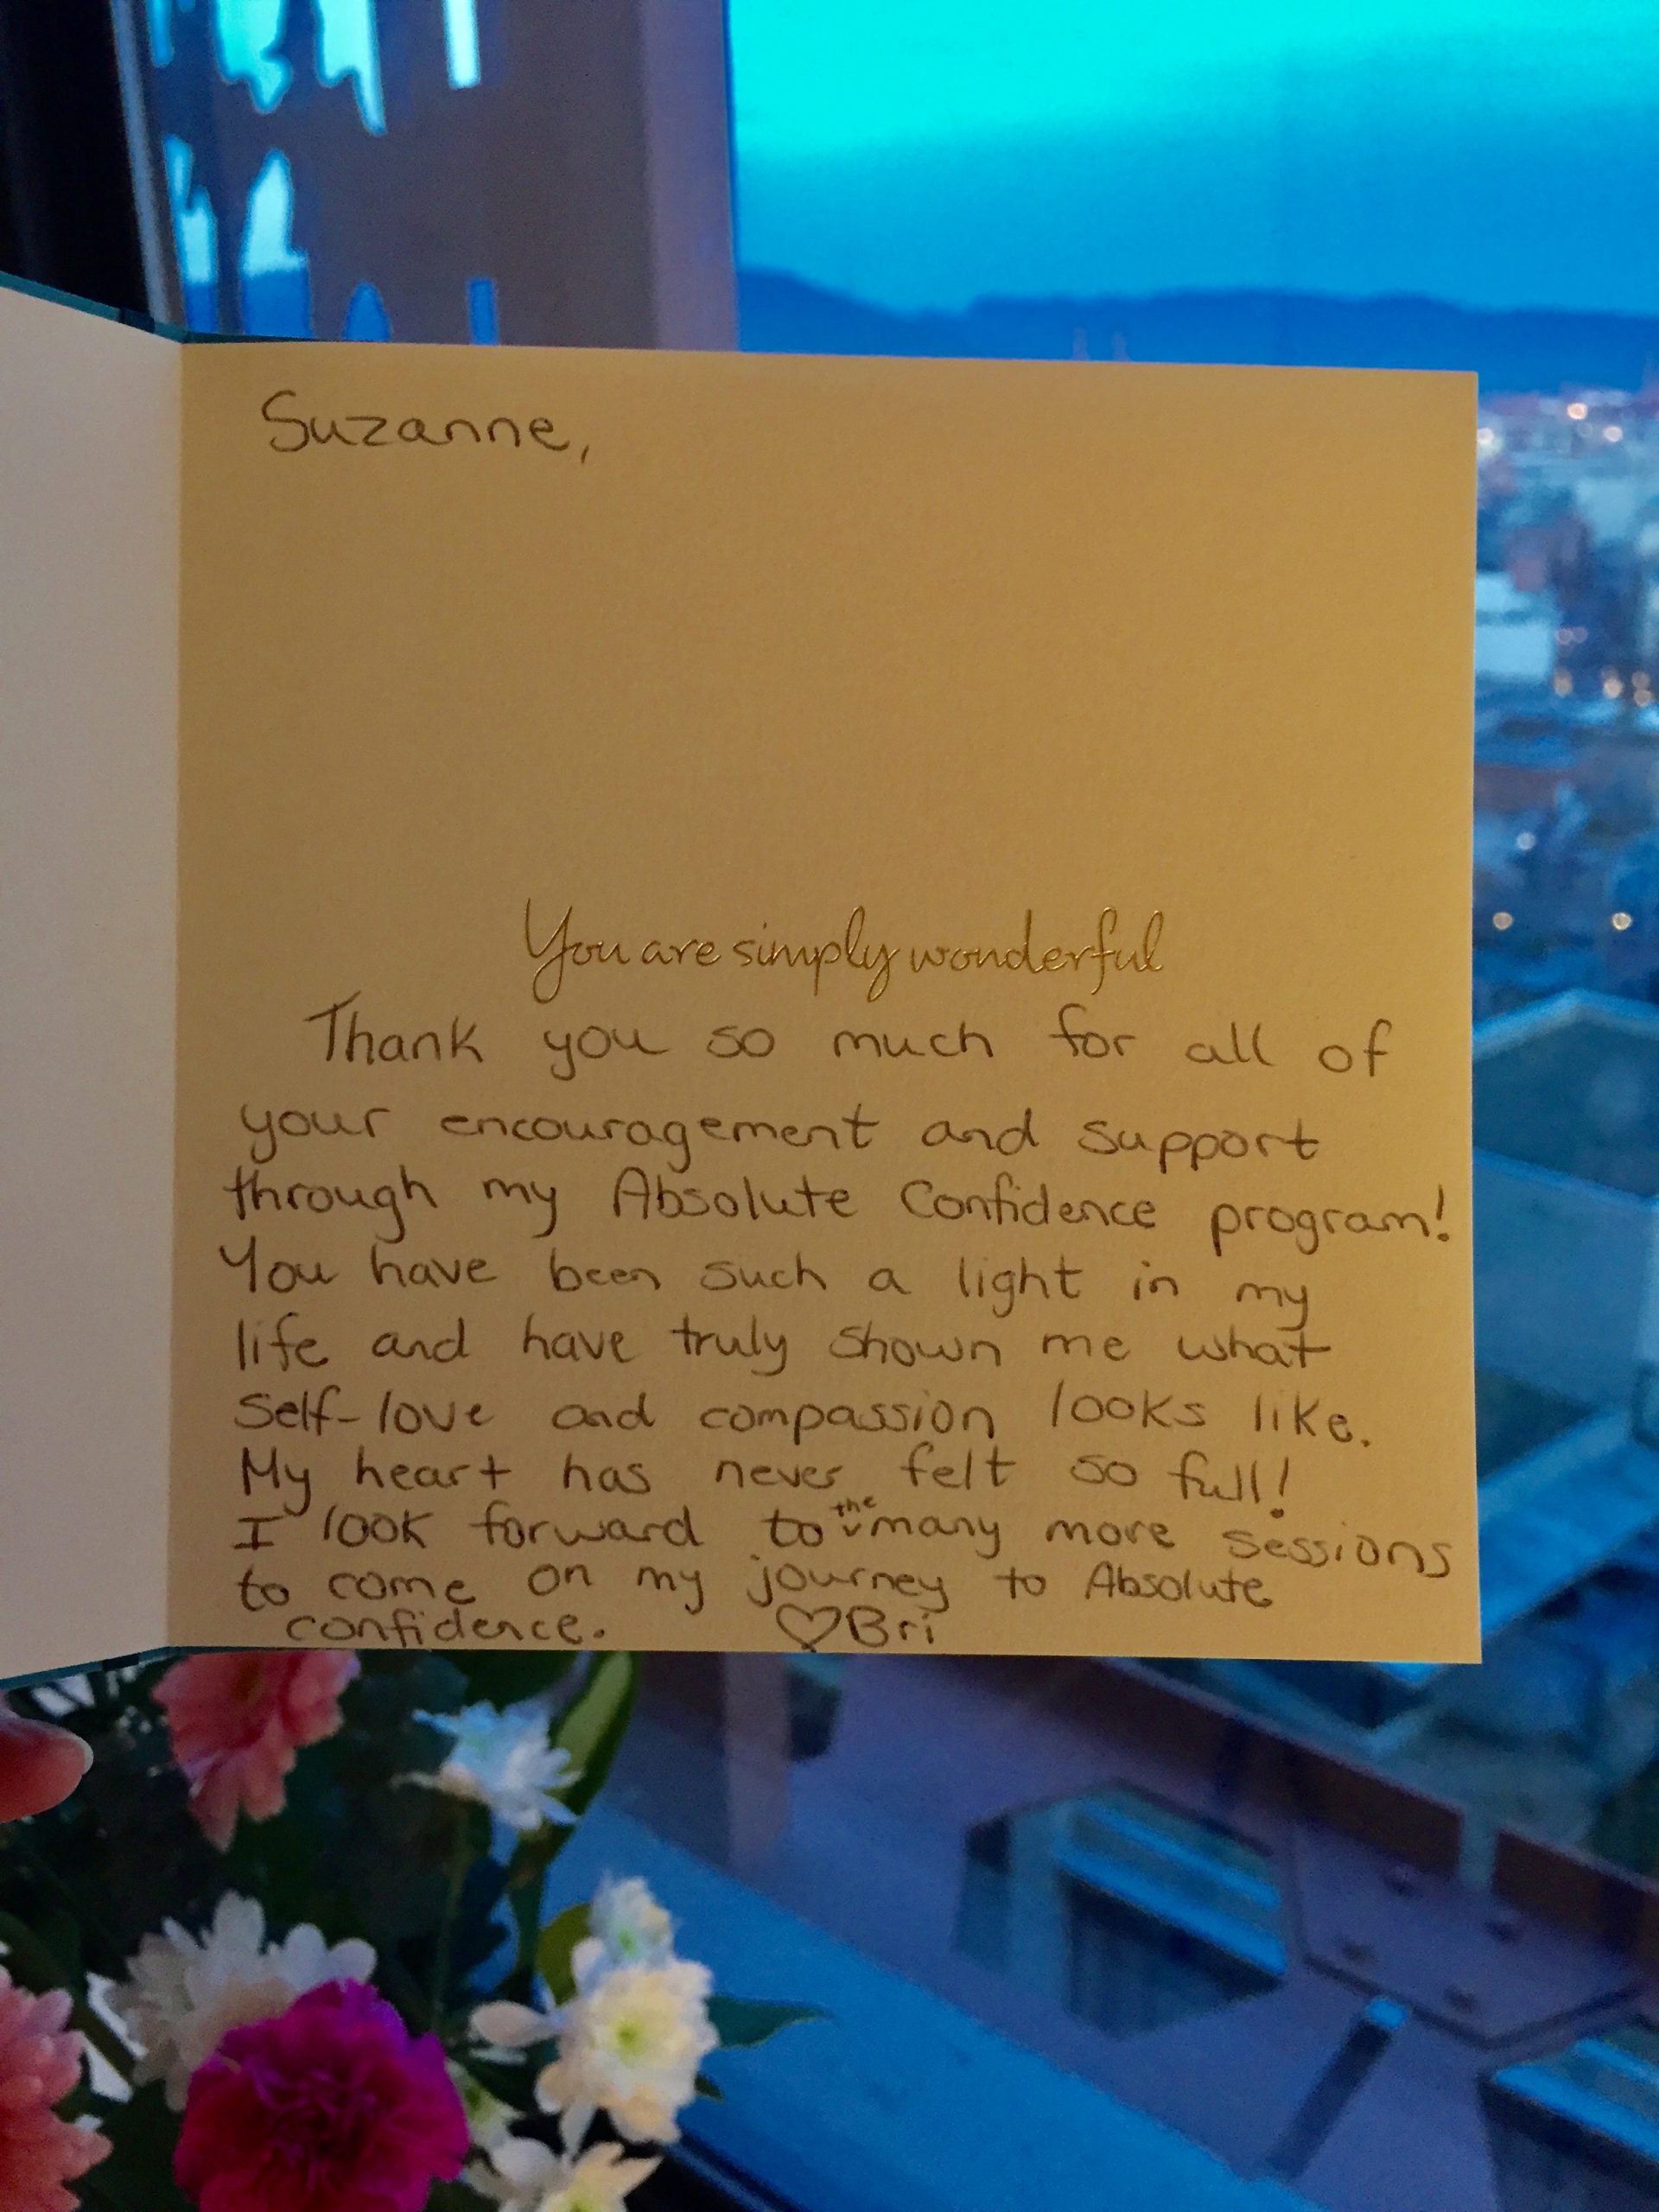 Suzanne,
You are simply wonderful
Thank you so much for all of
your encouragement and support
through my Absolute Confidence program!
You have been such a light in my
life and have truly shown me what
self-love and compassion looks like.
My heart has never felt so full!
I look forward to the many more sessions
to come on my journey to Absolute
confidence. ♡Bri